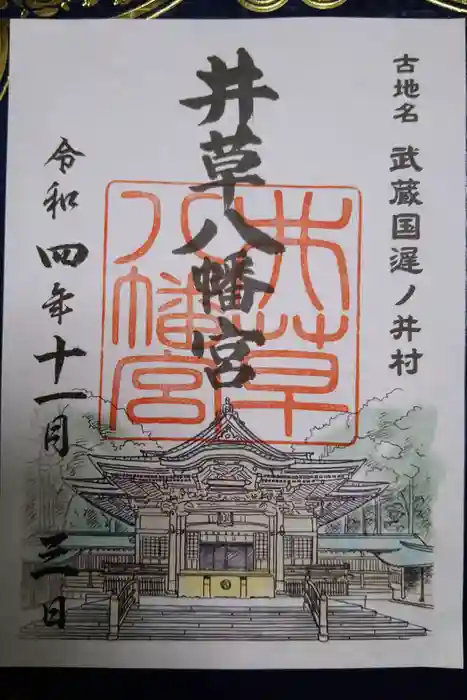 古地名 武蔵国遅ノ井村
井草八幡宮
井草八幡宮
令和四年十一月三日